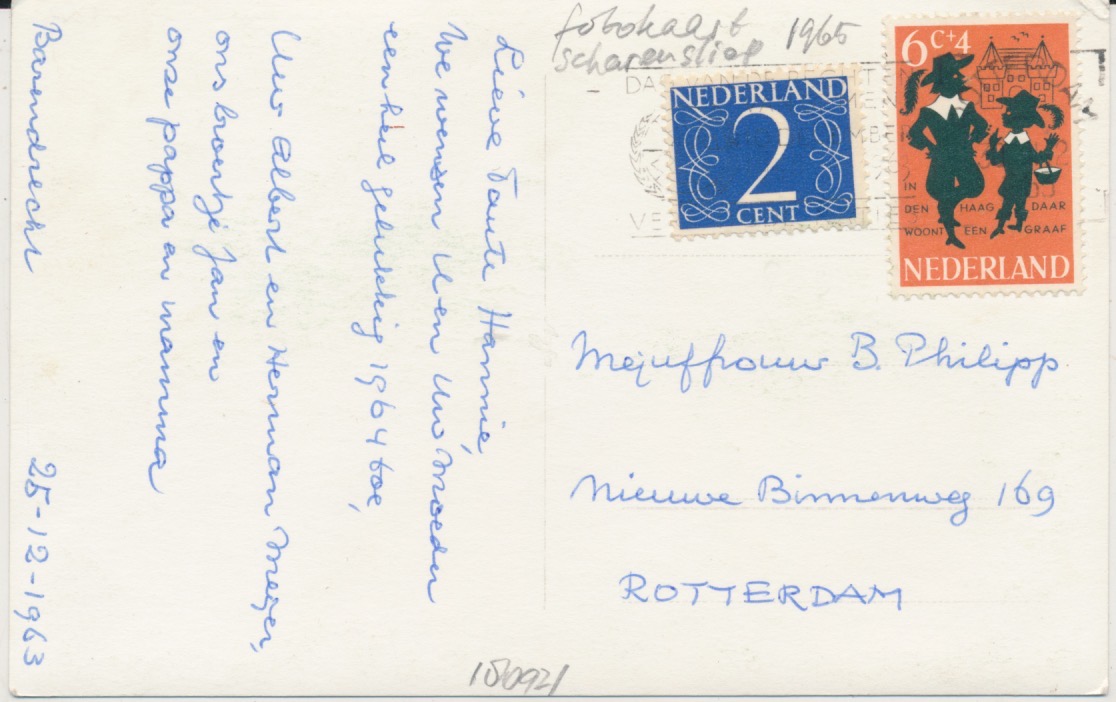 fotokaart 1965
scharensliep
NEDERLAND
2
CENT
6 C+4
IN
DEN HAAG DAAR
WOONT EEN GRAAF
NEDERLAND
Mejuffrouw B. Philipp
Nieuwe Binnenweg 169
ROTTERDAM
Lieve Tante Hannie,
We wensen U en Uw Moeder
een heil gelukkig 1964 toe,
Uw Albert en Herman Meyer,
ons broertje Jan en
onze pappa en mamma
Barendrecht 25-12-1963
150921